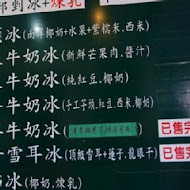 到冰+煉乳
冰(椰奶+水果+紫糯米.西米)
牛奶冰(新鮮芒果肉.醬汁)
牛奶冰(純紅豆.椰奶)
牛奶冰(手工芋頭.紅豆.西米.椰奶)
牛奶冰
已售完
雪耳冰(頂級雪耳+蓮子.龍眼干)
已售完
奶冰(椰奶.煉乳)